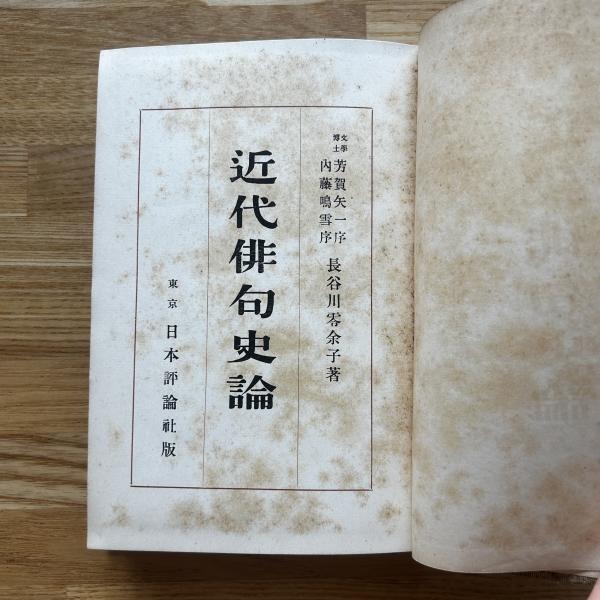 文學博士 芳賀矢一序
内藤鳴雪序
長谷川零余子著
近代俳句史論
東京 日本評論社版